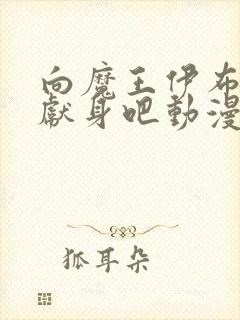 向魔王伊布
獻身吧動漫
狐耳朵